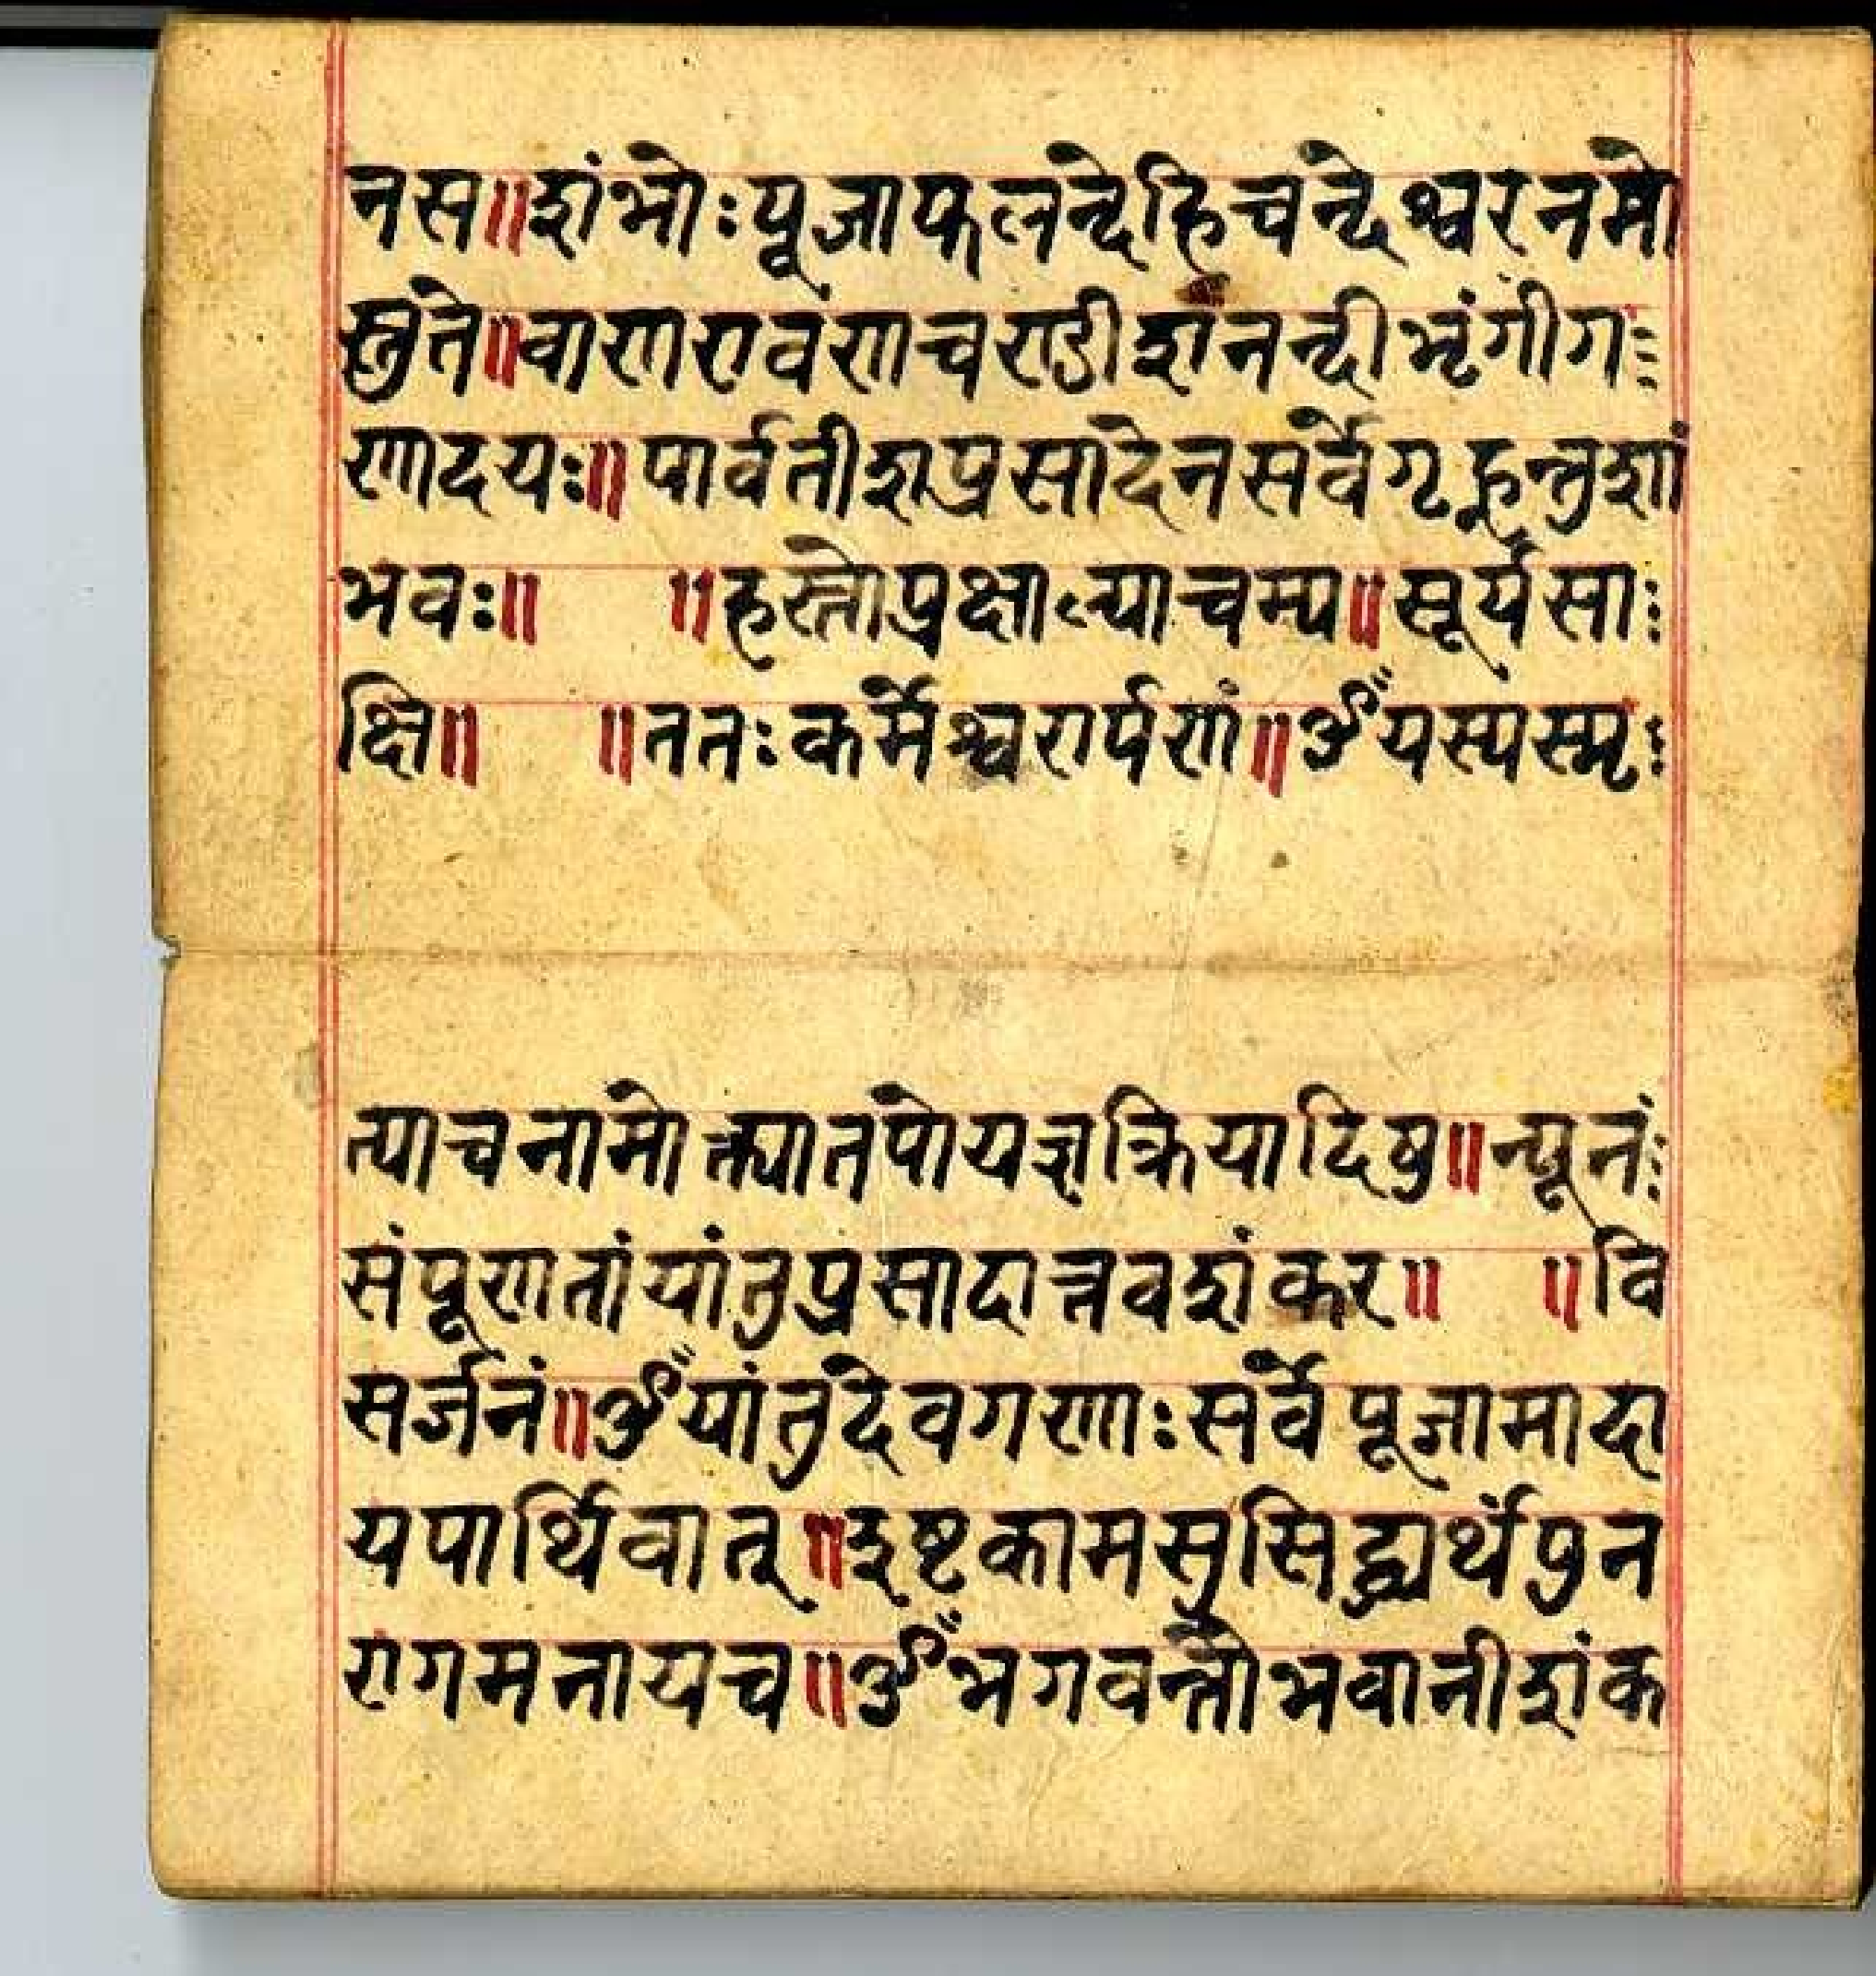 नस॥शंभोःपूजाफलन्देहिचन्देश्वरनमो
स्तुते॥वाणरावणचण्डीशनन्दीभृंगीग
णादयः॥पार्वतीशप्रसादेनसर्वेगृह्नन्तुशां
भवः॥ ॥हस्तोप्रक्षाल्याचम्य॥सूर्यसा
क्षि॥ ॥ततःकर्मेश्वरार्पणं॥ॐयस्यस्मृ
त्याचनामोक्त्यातपोयज्ञक्रियादिषु॥न्यूनं
संपूर्णतांयांतुप्रसादात्तवशंकर॥ ॥वि
सर्जनं॥ॐयांतुदेवगणाःसर्वेपूजामादा
यपार्थिवात्॥इष्टकामसुसिद्ध्यर्थंपुन
रागमनायच॥ॐभगवन्तौभवानीशंक